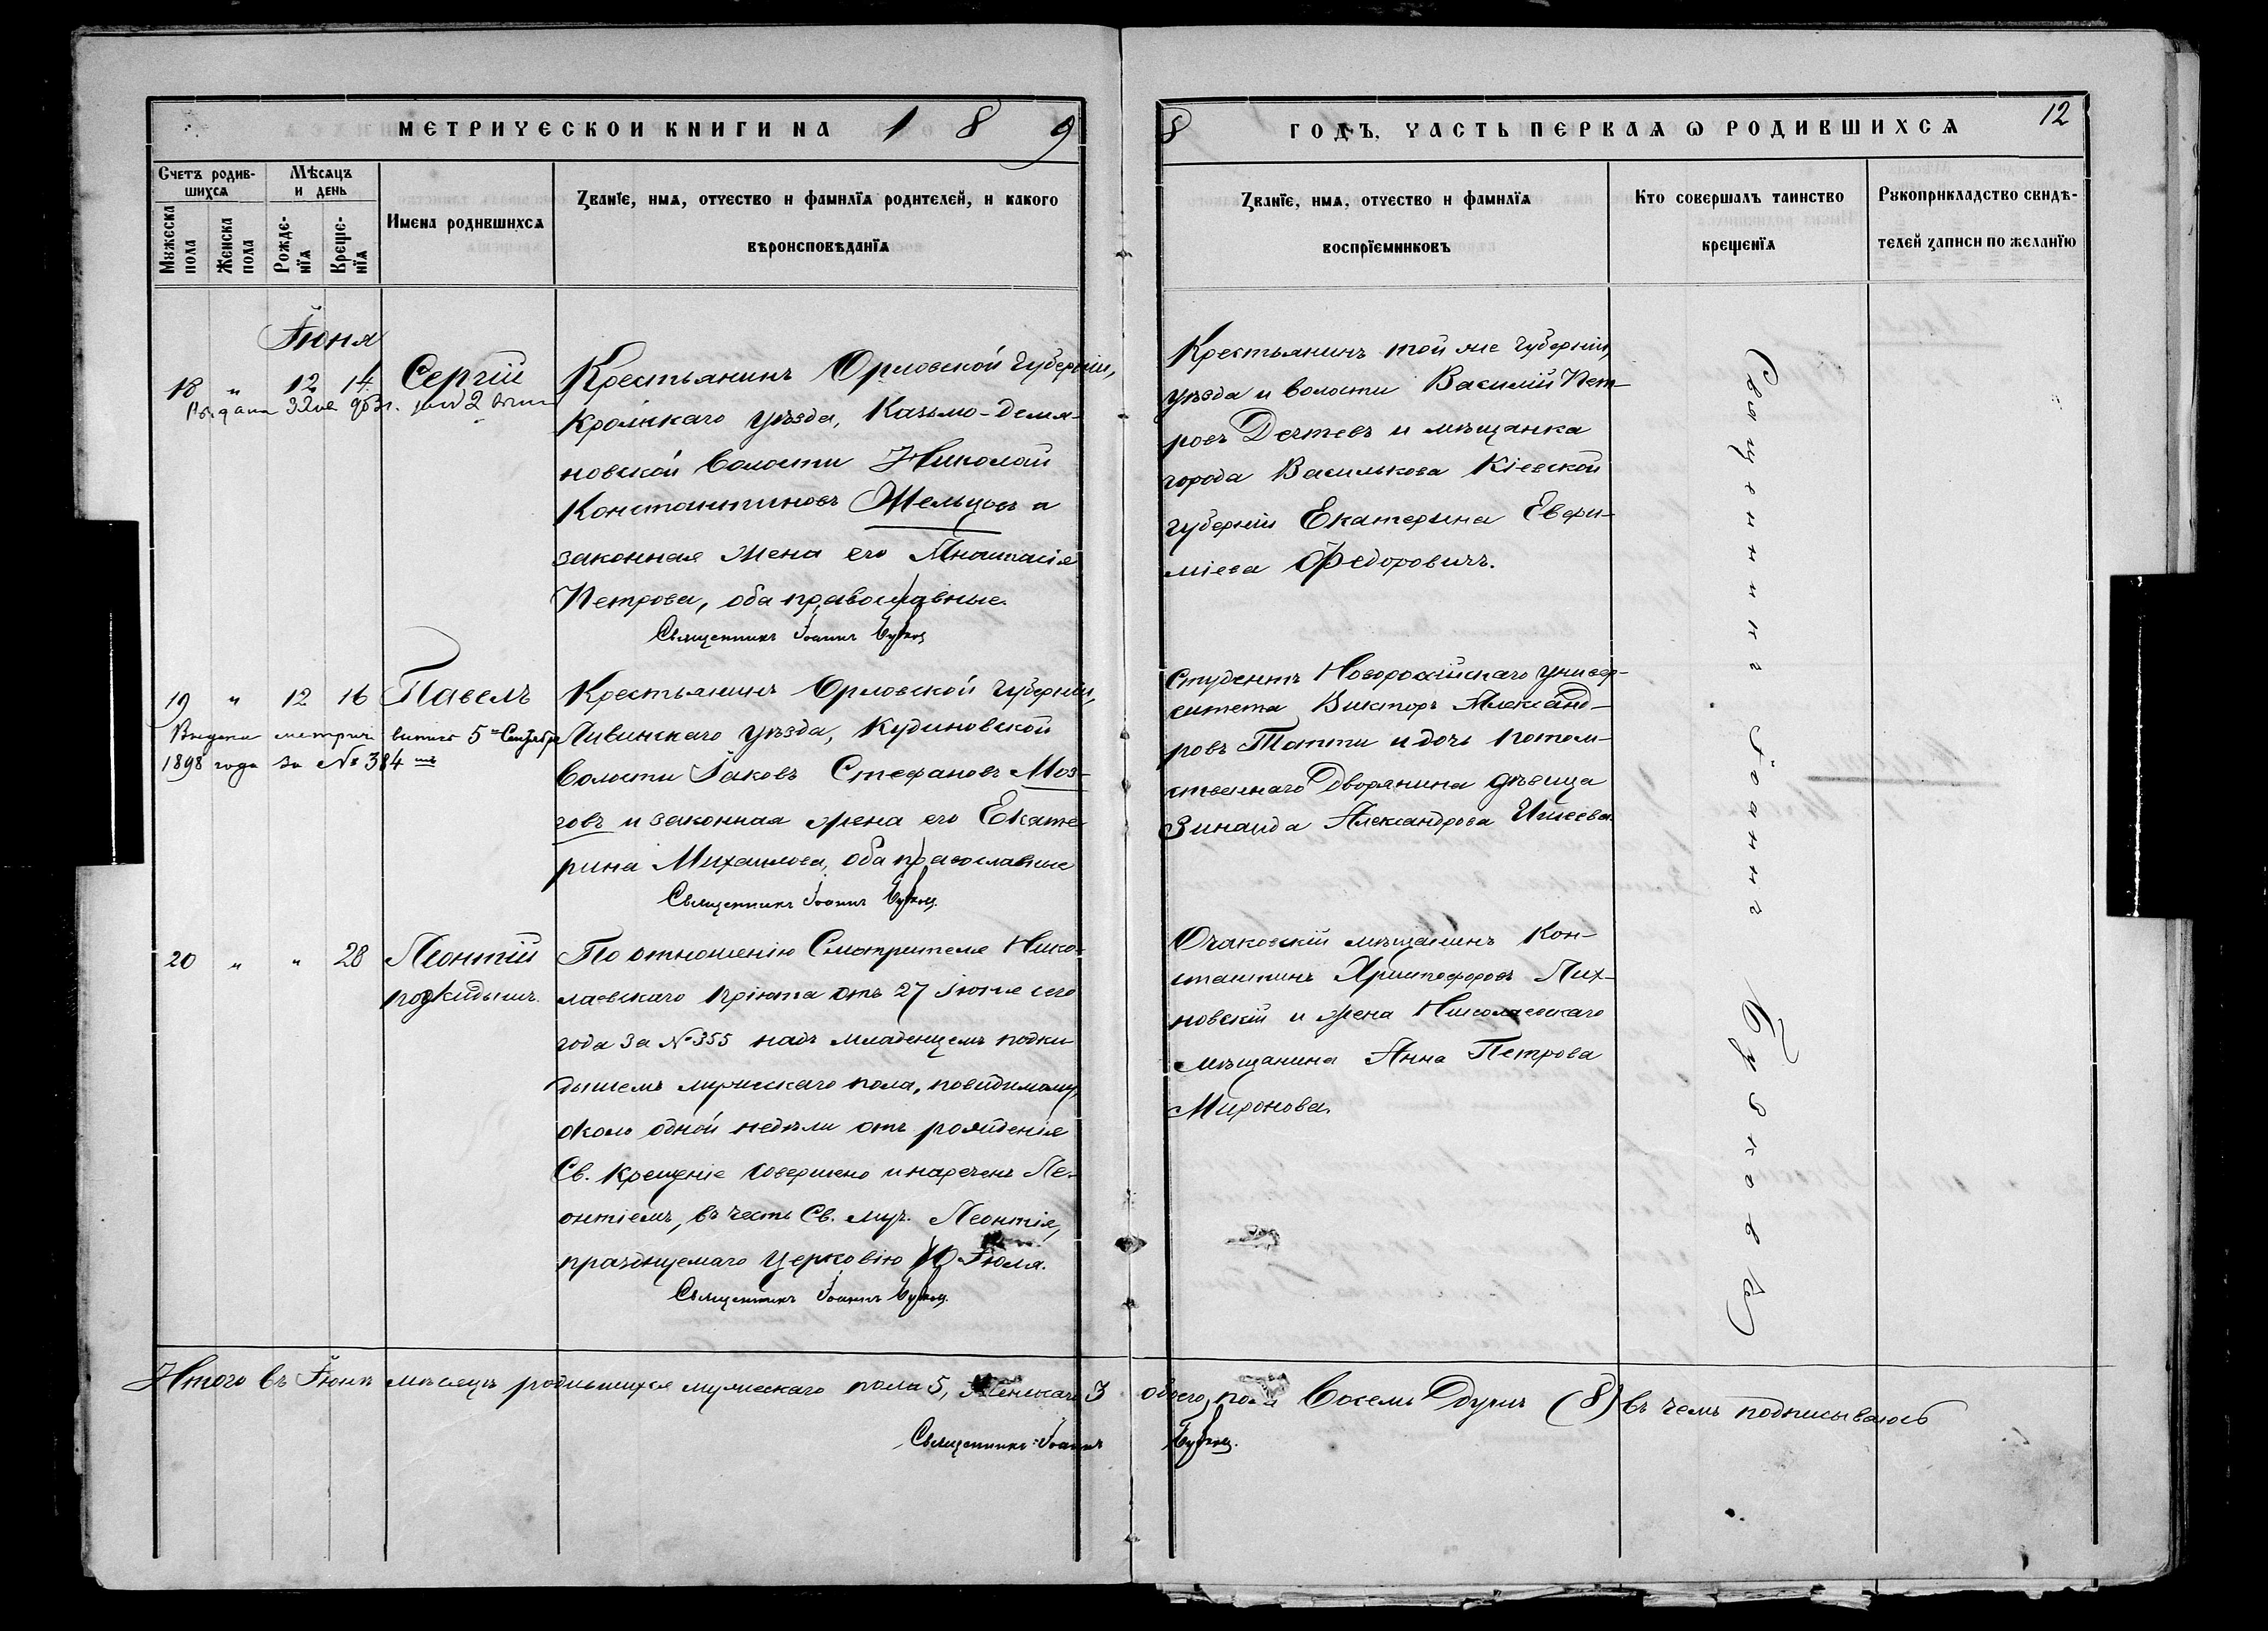 МЕТРИЧЕСКОЙ КНИГИ НА 1 8 9
8 ГОДЪ, ЧАСТЬ ПЕРВАЯ Ѡ РОДИВШИХСЯ
12
Счетъ родив-
шихся
Мѣсяцъ
и день
Мужеска
пола
Женска
пола
Рожде-
нїя
Креще-
нїя
Имена родившихся
Званїе, имя, отчество и фамилїя родителей, и какого
вѣроисповѣданїя
Званїе, имя, отчество и фамилїя
воспрїемниковъ
Кто совершалъ таинство
крещенїя
Рукоприкладство свидѣ-
телей записи по желанїю
Іюня
18 " 12 14 Сергій
Крестьянинъ Орловской губерніи,
Кромскаго уѣзда, Казьмо-Демья-
новской волости Николай
Константиновъ Жельцовъ и
законная жена его Анастасія
Петрова, оба православные.
Священникъ Іоаннъ
Крестьянинъ той же губерніи,
уѣзда и волости Василій Пет-
ровъ Дечтевъ и мѣщанка
города Василькова Кіевской
губерніи Екатерина Евфи-
міева Федоровичъ.
19 " 12 16 Павелъ
Выдана метрич. выпись 5 Сентября
1898 года за № 384
Крестьянинъ Орловской губерніи,
Ливинскаго уѣзда, Кудиновской
волости Іаковъ Стефановъ Моз-
говъ и законная жена его Екате-
рина Михаилова, оба православные
Священникъ Іоаннъ
Студентъ Новороссійскаго универ-
ситета Викторъ Александ-
ровъ Татти и дочь потом-
ственнаго Дворянина дѣвица
Зинаида Александрова
20 " " 28 Леонтій
подкидышъ.
По отношенію Смотрителя Нико-
лаевскаго пріюта отъ 27 Іюня сего
года за № 355 надъ младенцемъ подки-
дышемъ мужескаго пола, повидимому,
около одной недѣли отъ рожденія
Св. крещеніе совершено и нареченъ Ле-
онтіемъ, въ честь Св. муч. Леонтія,
празднуемаго Церковію 10 Іюля.
Священникъ Іоаннъ
Очаковскій мѣщанинъ Кон-
стантинъ Христофоровъ Лих-
новскій и жена Николаевскаго
мѣщанина Анна Петрова
Миронова.
Священникъ Іоаннъ
Итого въ Іюнѣ мѣсяцѣ родившихся мужескаго пола 5, женскаго 3 обоего пола восемь душъ (8) въ чемъ подписываюсь
Священникъ Іоаннъ